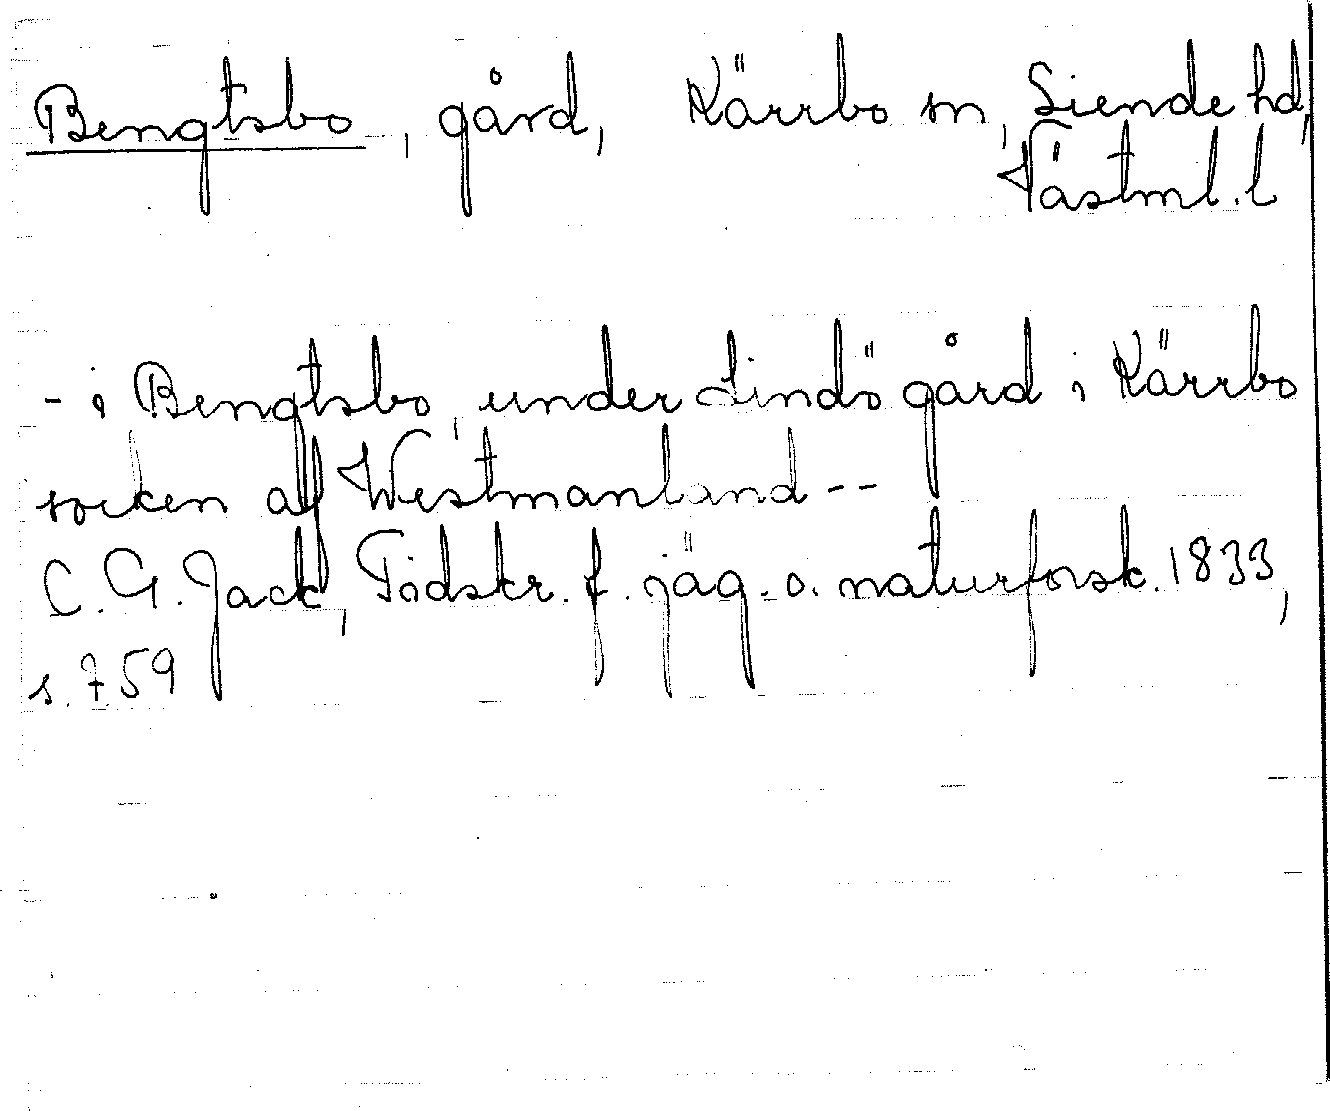 Bengtsbo, gård, Kärrbo sn, Siende hd,
Västml. l
- i Bengtsbo, under Lindö gård i Kärrbo
socken af Westmanland --
C. G. Jack, Tidskr. f. jäg. o. naturforsk. 1833,
s. 759